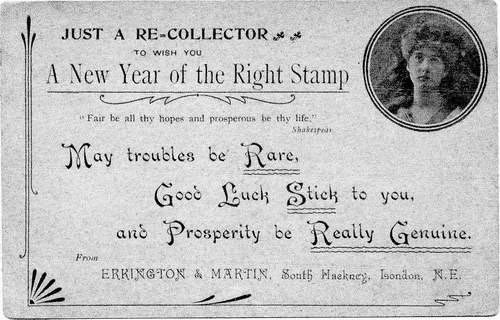 JUST A RE-COLLECTOR
TO WISH YOU
A New Year of the Right Stamp
"Fair be all thy hopes and prosperous be thy life."
Shakespear
May troubles be Rare,
Good Luck Stick to you,
and Prosperity be Really Genuine.
From
ERRINGTON & MARTIN, South Hackney, London, N.E.